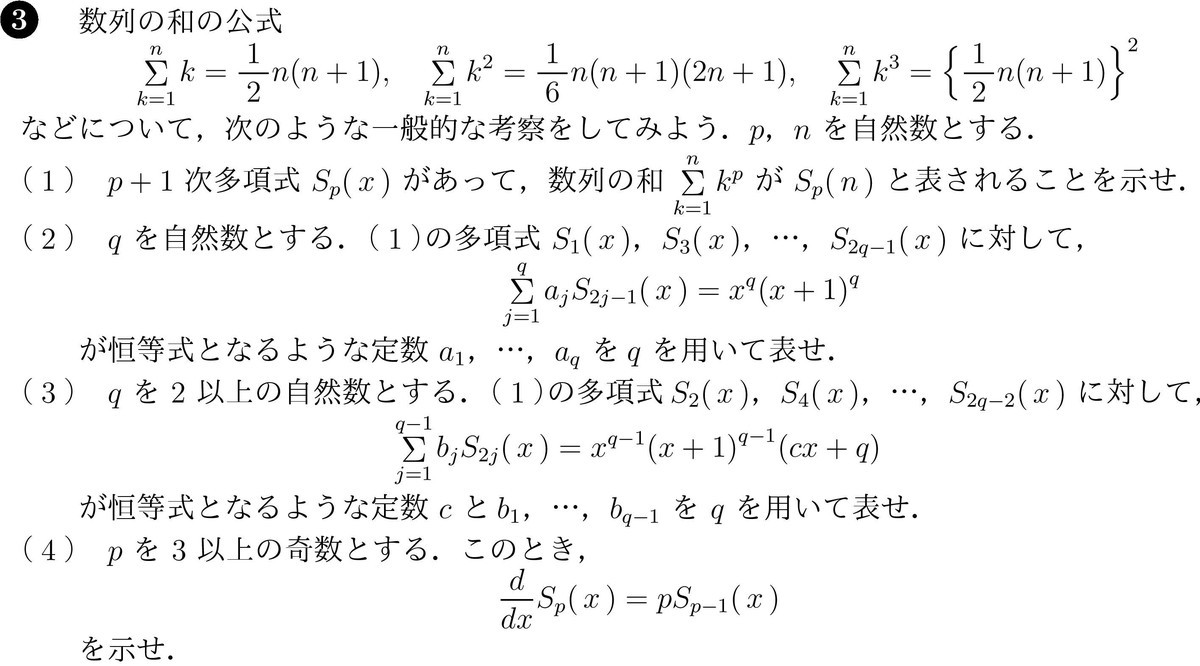 ❸ 数列の和の公式
$\sum_{k=1}^{n} k = \frac{1}{2}n(n+1),\quad \sum_{k=1}^{n} k^2 = \frac{1}{6}n(n+1)(2n+1),\quad \sum_{k=1}^{n} k^3 = \left\{\frac{1}{2}n(n+1)\right\}^2$
などについて，次のような一般的な考察をしてみよう．$p$，$n$ を自然数とする．
（1） $p+1$ 次多項式 $S_p(x)$ があって，数列の和 $\sum_{k=1}^{n} k^p$ が $S_p(n)$ と表されることを示せ．
（2） $q$ を自然数とする．（1）の多項式 $S_1(x)$，$S_3(x)$，…，$S_{2q-1}(x)$ に対して，
$\sum_{j=1}^{q} a_j S_{2j-1}(x) = x^q(x+1)^q$
が恒等式となるような定数 $a_1$，…，$a_q$ を $q$ を用いて表せ．
（3） $q$ を 2 以上の自然数とする．（1）の多項式 $S_2(x)$，$S_4(x)$，…，$S_{2q-2}(x)$ に対して，
$\sum_{j=1}^{q-1} b_j S_{2j}(x) = x^{q-1}(x+1)^{q-1}(cx+q)$
が恒等式となるような定数 $c$ と $b_1$，…，$b_{q-1}$ を $q$ を用いて表せ．
（4） $p$ を 3 以上の奇数とする．このとき，
$\frac{d}{dx}S_p(x) = pS_{p-1}(x)$
を示せ．